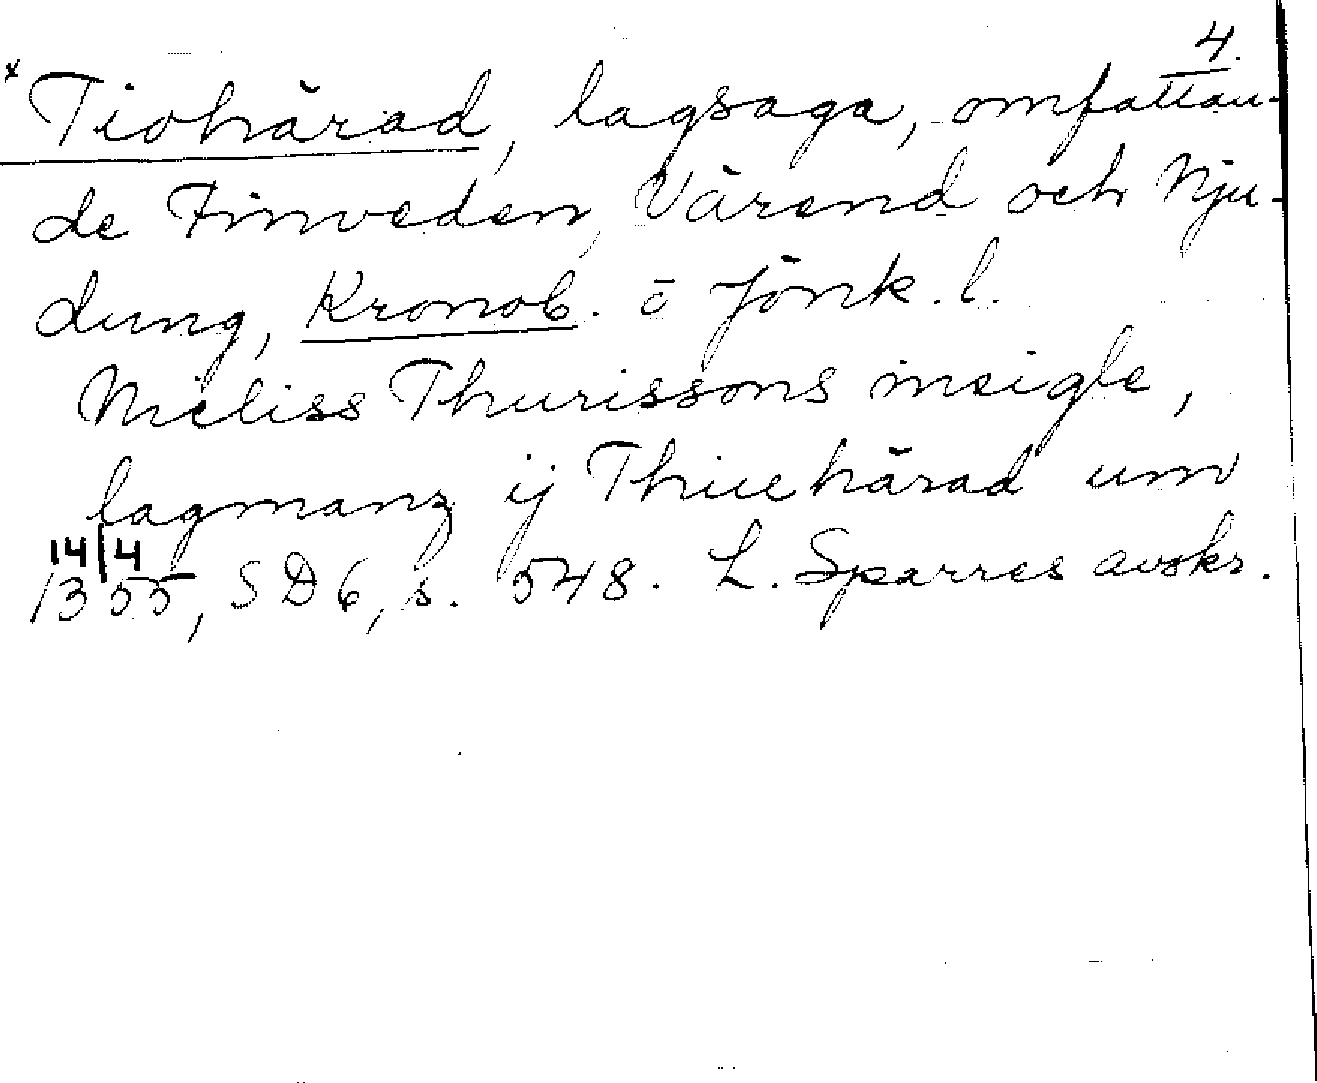 4.
x Tiohärad, lagsaga, omfattan-
de Finveden, Värend och Nju-
dung, Kronob. o Jönk. l.
Nieliss Thurissons insigle,
lagmanz ij Thiuehärad um
14/4
1355, SD 6, s. 548. L. Sparres avskr.